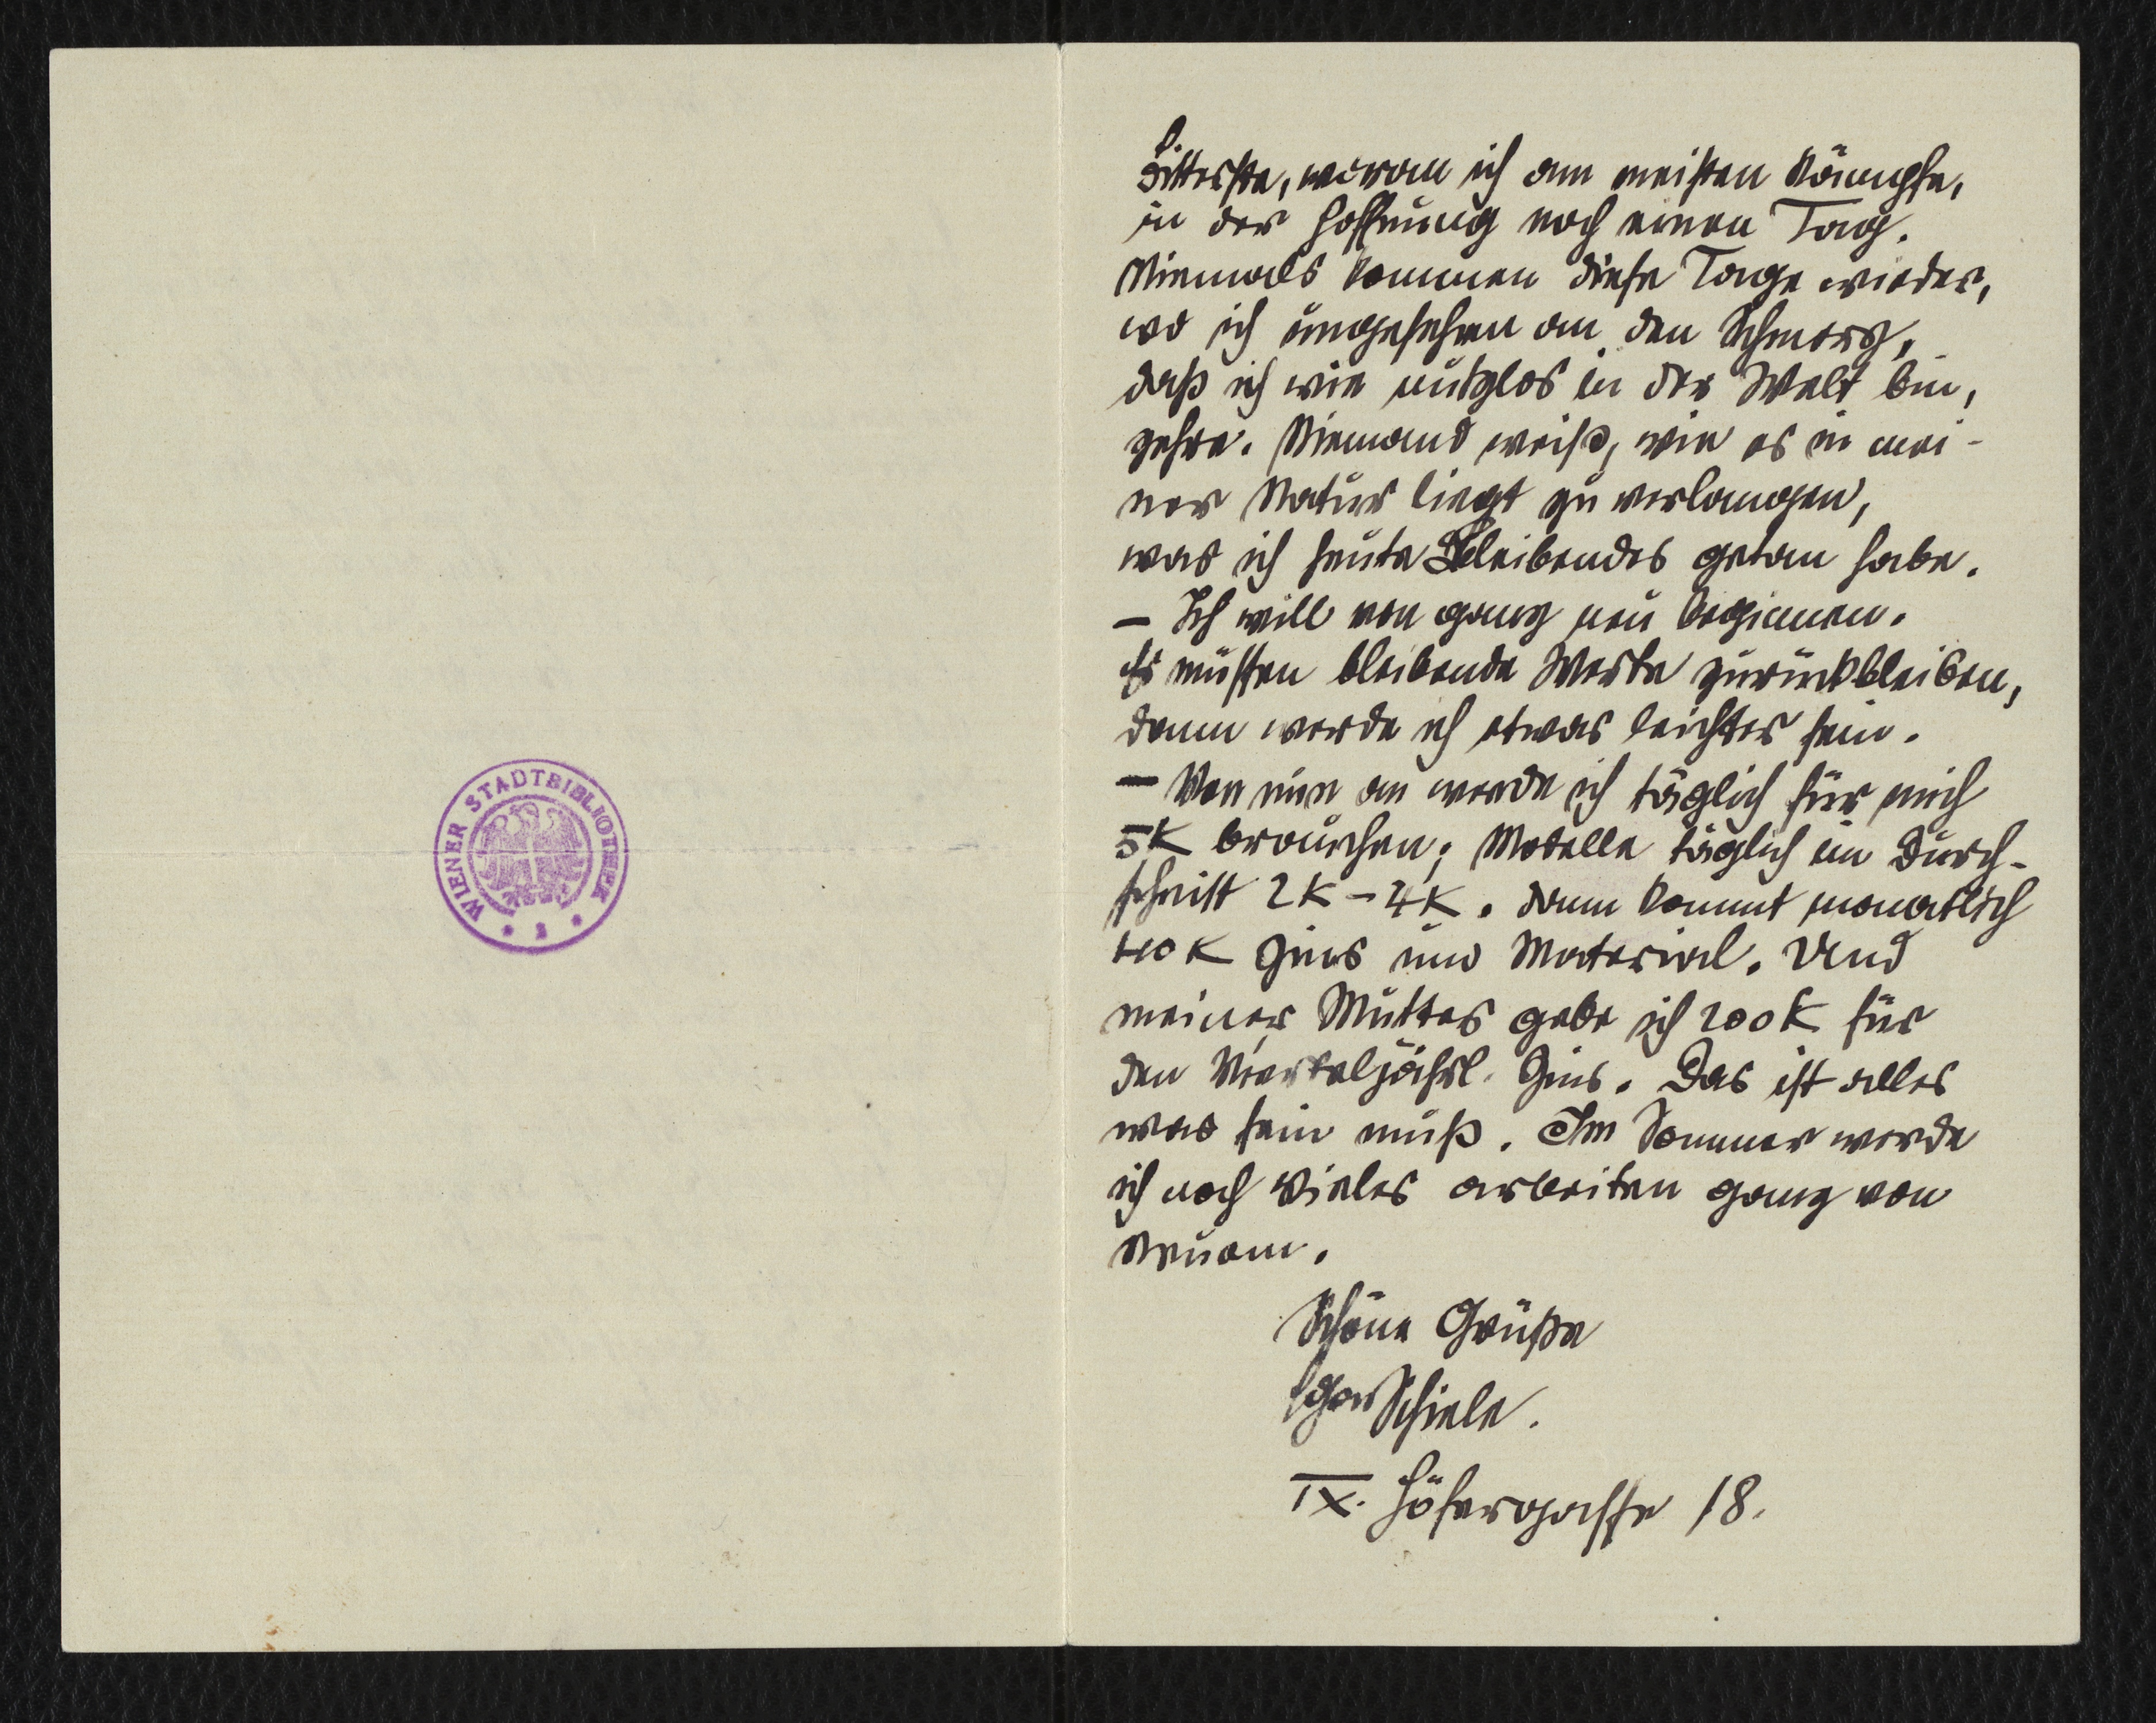 WIENER STADTBIBLIOTHEK
bitterste, woran ich am meisten kämpfe,
in der Hoffnung noch einen Tag.
Niemals kommen diese Tage wieder,
wo ich ungesehen an den Schmerz,
daß ich wie nutzlos in der Welt bin,
zehre. Niemand weiß, wie es in mei-
ner Natur liegt zu verlangen,
was ich heute Bleibendes getan habe.
– Ich will von ganz neu beginnen.
Es müssen bleibende Werke zurückbleiben,
dann werde ich etwas leichter sein.
– Von nun an werde ich täglich für mich
5K brauchen; Modelle täglich im Durch-
schnitt 2K – 4K. dann kommt monatlich
40K Zins und Material. Und
meiner Mutter gebe ich 200K für
den Vierteljährl. Zins. Das ist alles
was sein muß. Im Sommer werde
ich noch Vieles arbeiten ganz von
Neuem.
Schöne Grüße
Egon Schiele.
IX. Höfergasse 18.